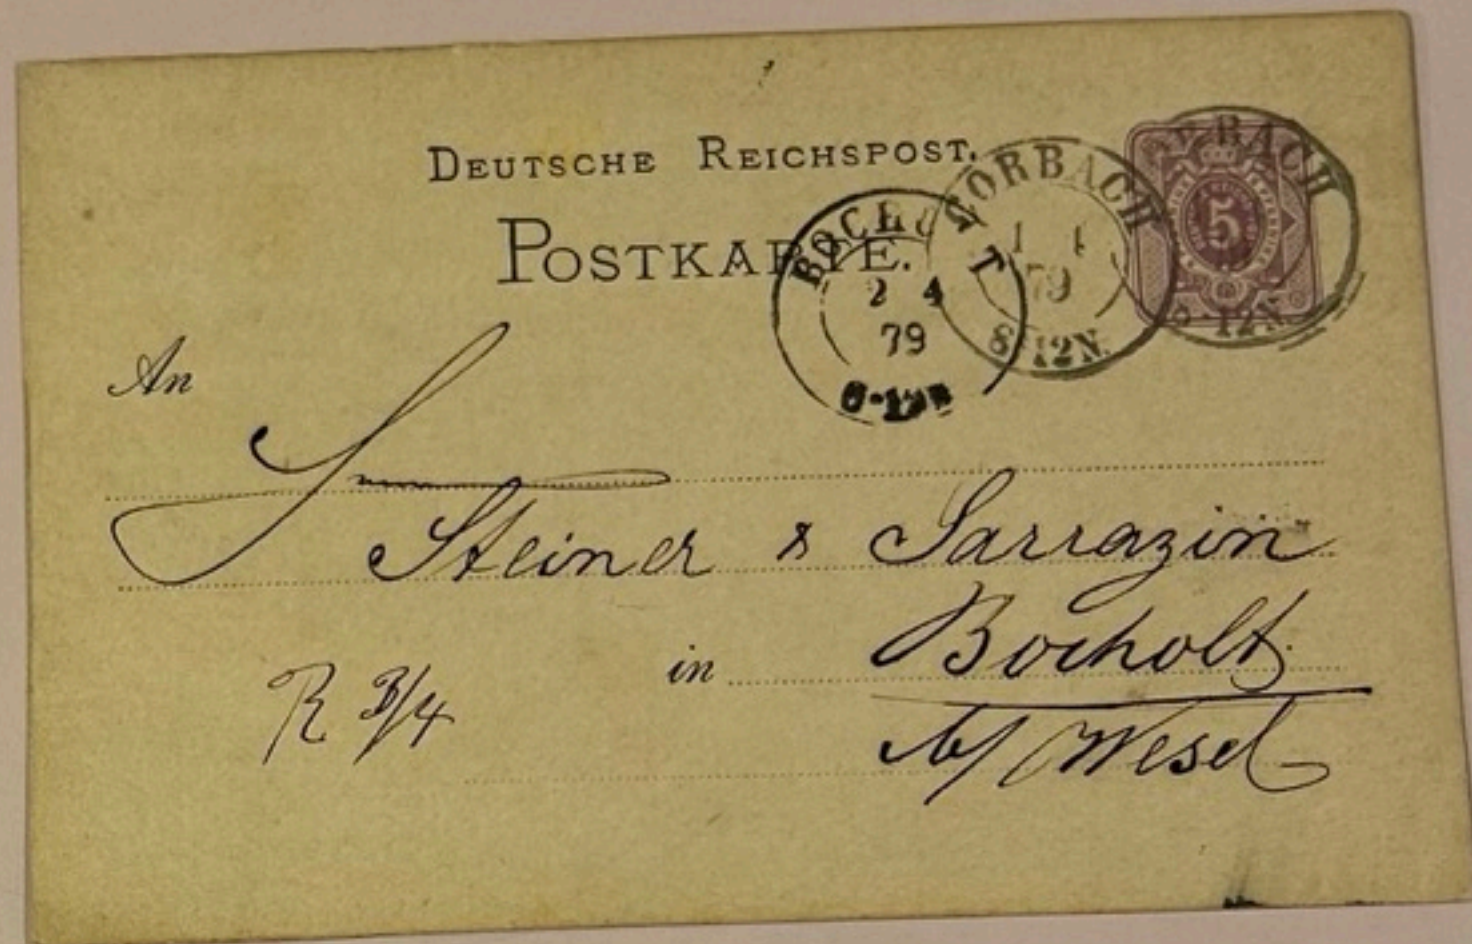 DEUTSCHE REICHSPOST.
POSTKARTE.
BOCHOLT
2 4
79
CORBACH
1 4
79
8-12N.
CORBACH
5
12N.
An
Steiner & Sarrazin
in Bocholt.
b/ Wesel
R 3/4